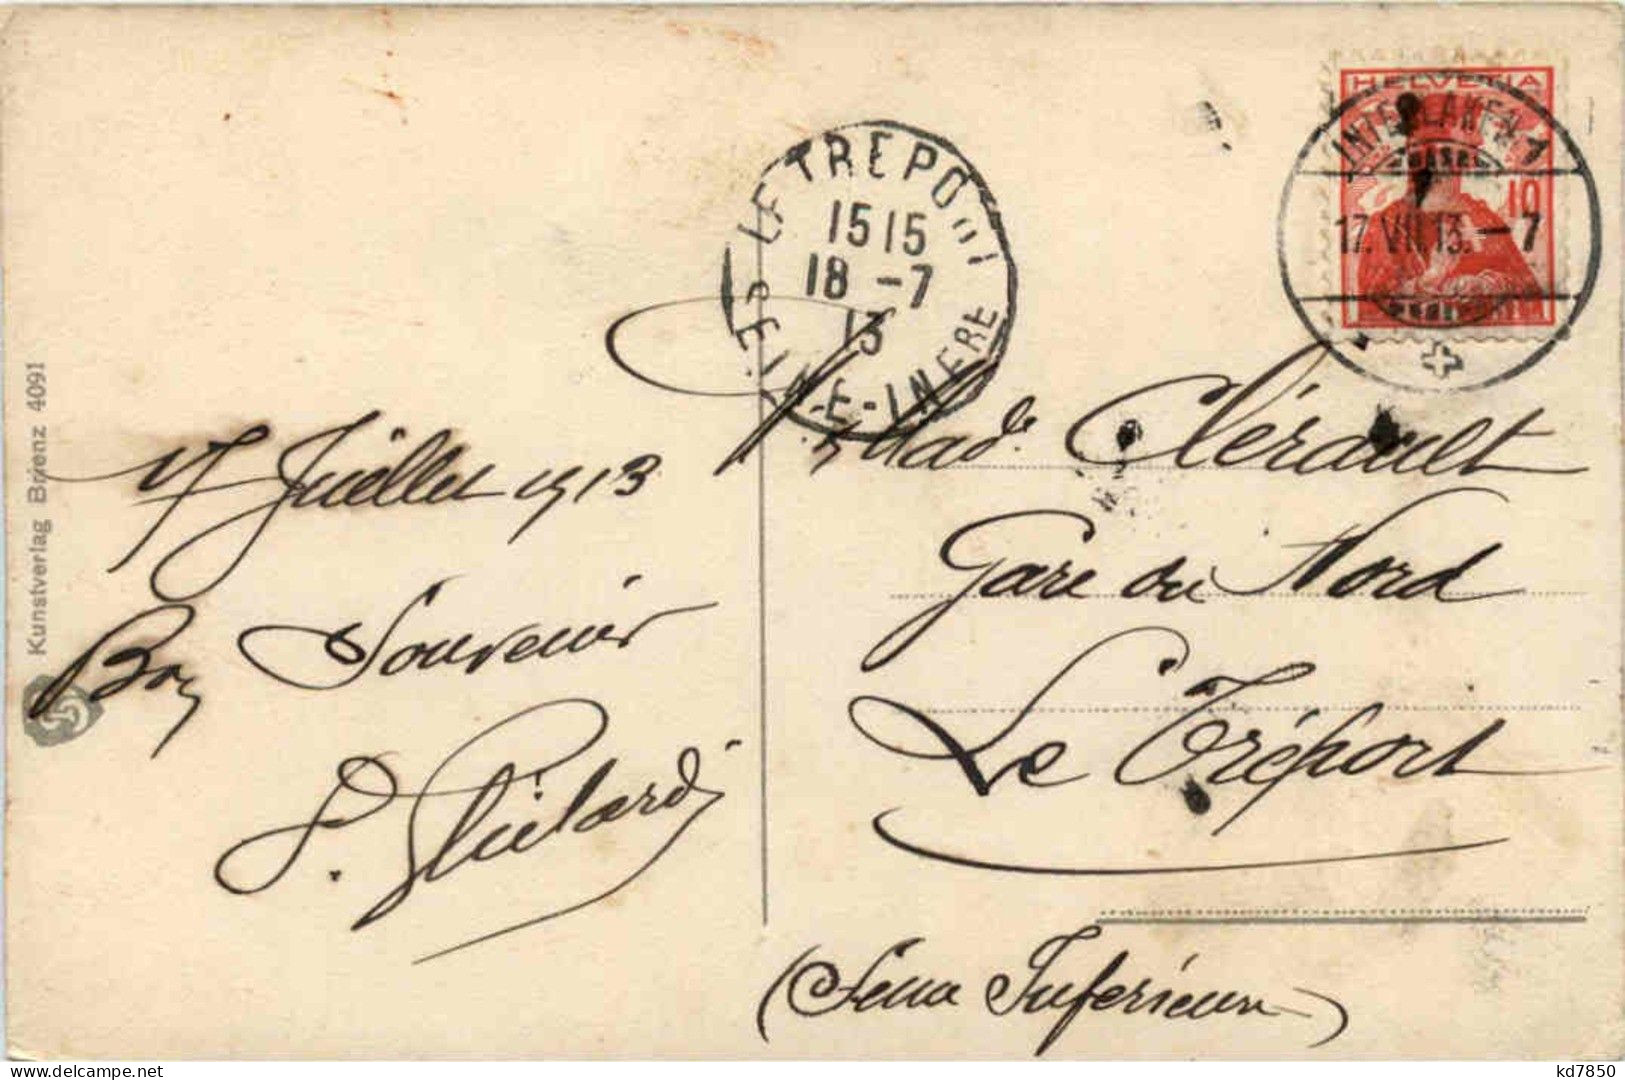 HELVETIA
10
INTERLAKEN 1
17. VII. 13. —7
LE TREPORT
1515
18 -7
13
SEINE-INFRE
17 Juillet 1913
Bon Souvenir
Mad. Clérault
Gare du Nord
Le Tréport
(Seine Inférieure)
Kunstverlag Brienz 4091
kd7850